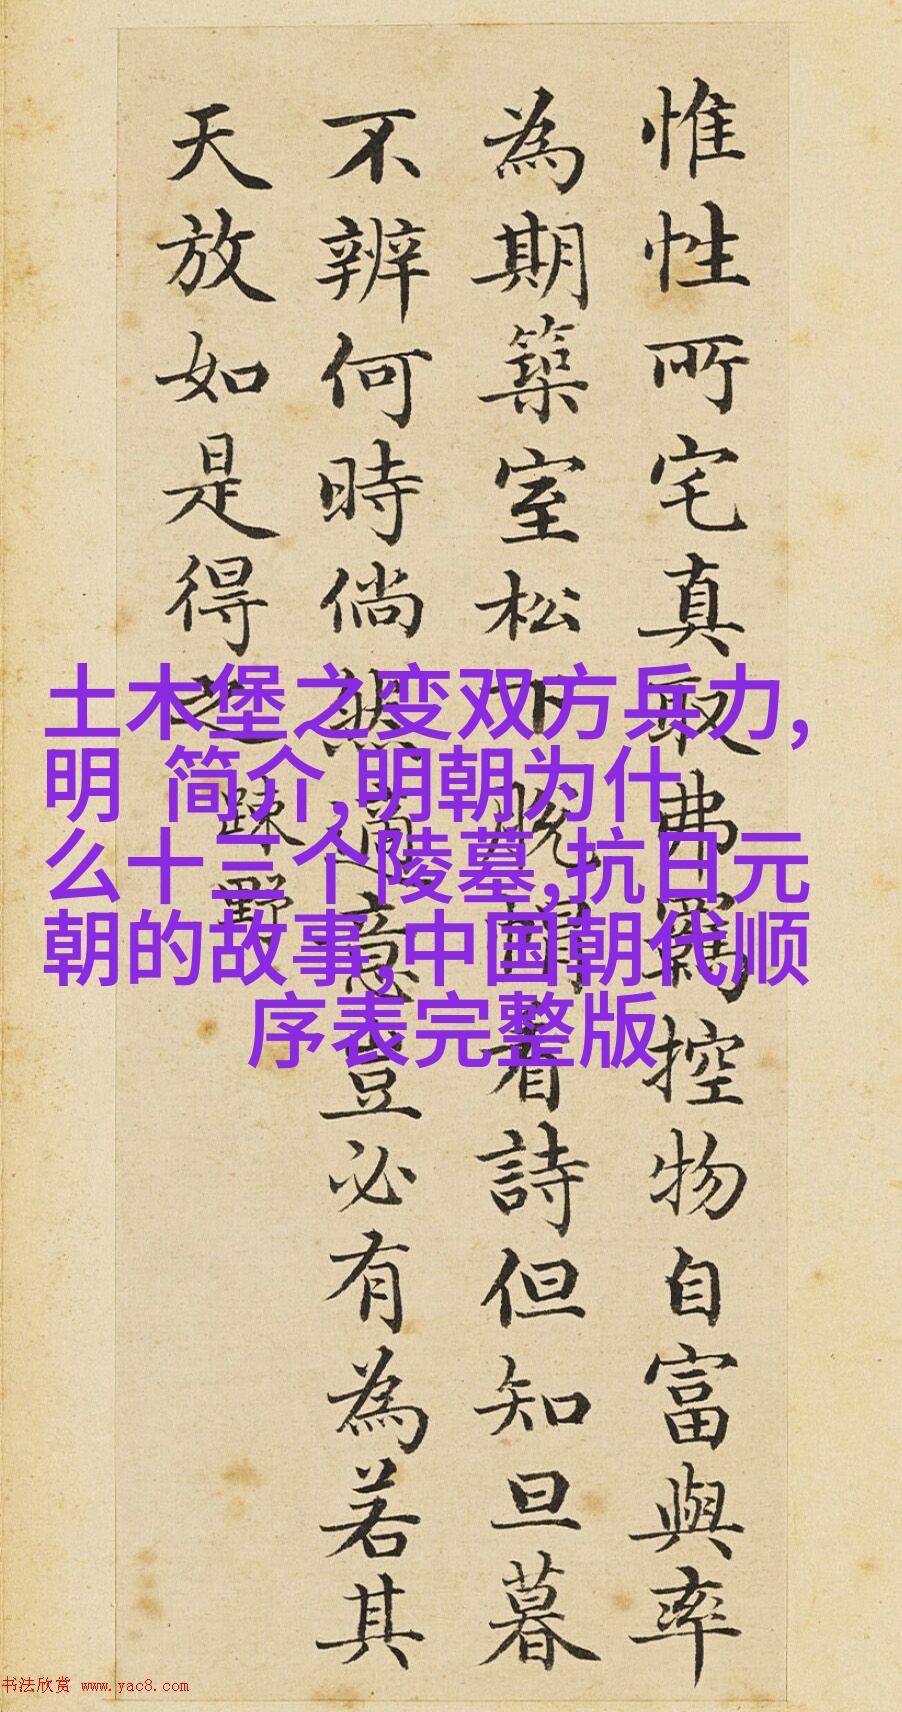 惟性所宅真取弗羈控物自富與率
為期築室松下脱帽看詩但知旦暮
不辨何時倘然適意豈必有為若其
天放如是得之疎野
土木堡之变双方兵力,
明 简介,明朝为什
么十三个陵墓,抗日元
朝的故事,中国朝代顺
序表完整版
书法欣赏 www.yac8.com